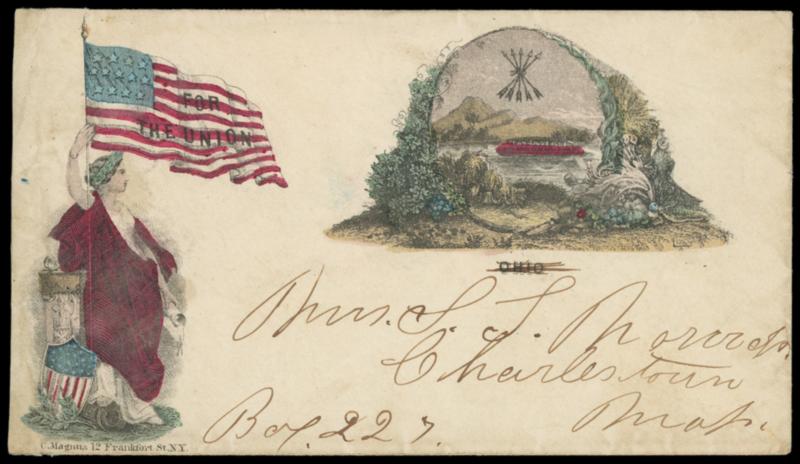 FOR
THE UNION
OHIO
Mrs. S. S.
Charlestown
Box 227.
Mass.
C. Magnus 12 Frankfort St. N.Y.